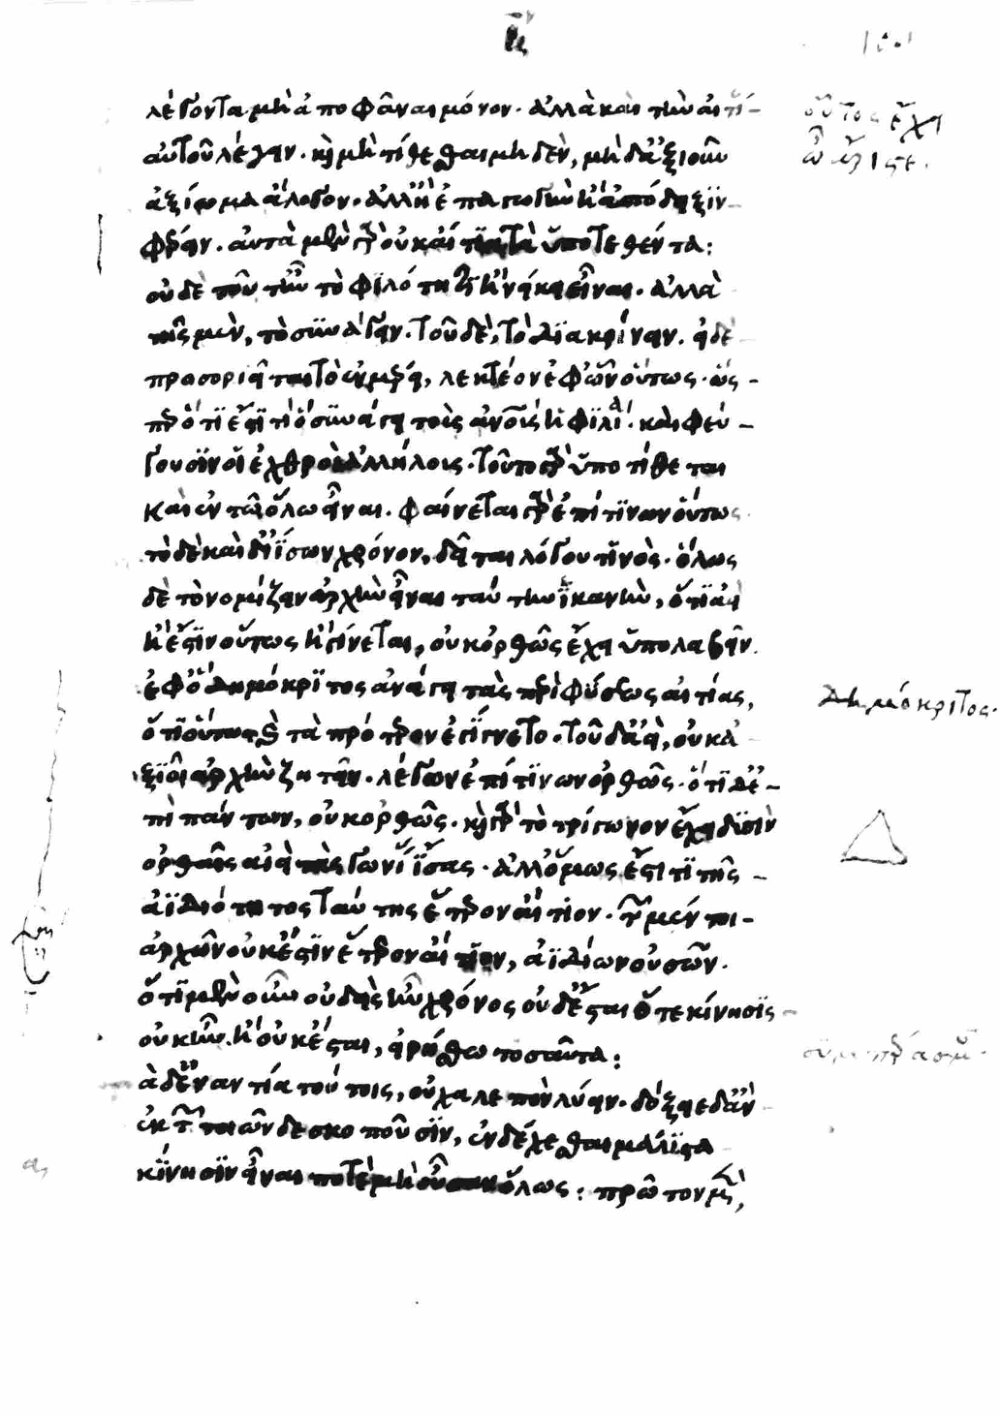 λέγοντα μὴ ἀποφᾶναι μόνον· ἀλλὰ καὶ τὴν αἰτί-
αὐτοῦ λέγειν· κὶ μὴ τίθεσθαι μηδὲν, μὴδ᾽ ἀξιοῦν
ἀξίωμα ἄλογον· ἀλλ᾽ ἢ ἐπαγωγὴν ἢ ἀπόδειξϊν
φέρειν· αυτὰ μὲν γὰρ οὐκ αἴτϊα τὰ ὑποτεθέντα:
οὐδὲ τοῦτ᾽ ἦν τὸ φϊλότητϊ ἢ νείκει εἶναι· ἀλλὰ
τῆς μὲν, τὸ σϋνάγειν· τοῦ δὲ, τὸ δϊακρίνειν· εἰ δὲ
προσοριεῖται τὸ ἐν μέρει, λεκτέον ἐφ᾽ ὧν οὕτως· ὥσ-
περ ὅτϊ ἔστϊ τὶ ὃ σϋνάγει τοὺς ἀνους ἡ φϊλία· καὶ φεύ-
γουσϊν οἱ ἐχθροὶ ἀλλήλους· τοῦτο γὰρ ὑποτίθεται
καὶ ἐν τῶ ὅλω εἶναι· φαίνεται γὰρ ἐπί τϊνων οὕτως
τὸ δὲ καὶ δϊ᾽ ἴσων χρόνων, δεῖται λόγου τϊνὸς· ὅλως
δὲ τὸ νομίζειν ἀρχὴν εἶναι ταύτην ϊκανὴν, ὅτϊ ἀεὶ
ἢ ἔστϊν οὕτως ἢ γίνεται, οὐκ ὀρθῶς ἔχει ὑπολαβεῖν.
ἐφ᾽ ὃ δημόκρϊτος ἀνάγει τὰς περὶ φύσεως αἰτίας,
ὅτϊ οὕτως καὶ τὰ πρότερον ἐγίγνετο· τοῦ δ᾽ ἀεὶ, οὐκ ἀ
ξϊοῖ ἀρχὴν ζητεῖν· λέγων ἐπί τϊνων ὀρθῶς· ὅτϊ δ᾽ ἐ-
πὶ πάντων, οὐκ ὀρθῶς· κὶ γὰρ τὸ τρίγωνον ἔχει δϋσὶν
ὀρθαῖς αἰεὶ τὰς γωνί ἴσας· ἀλλ᾽ ὅμως ἔστι τϊ τῆς
ἀϊδιότητος ταύτης ἕτερον αἴτιον· τῶν μέντοι-
ἀρχῶν οὐκ ἔστϊν ἕτερον αἴτϊον, ἀϊδίων οὐσῶν·
ὅτϊ μὲν οὖν οὐδεὶς ἦν χρόνος οὐδ᾽ ἔσται ὅτε κίνησϊς
οὐκ ἦν· ἢ οὐκ ἔσται, εἰρήσθω τοσαῦτα:
ὰ δ᾽ ἐναντία τούτοις, οὐ χαλεπὸν λύειν· δόξειε δ᾽ ἂν
ἐκ τῶν τοιῶνδε σκοποῦσϊν, ἐνδέχεσθαι μάλϊστα
κίνησϊν εἶναι ποτὲ μὴ οὖσαν ὅλως: πρῶτον μὲν,
οὕτος ἔχει
δημόκριτος.